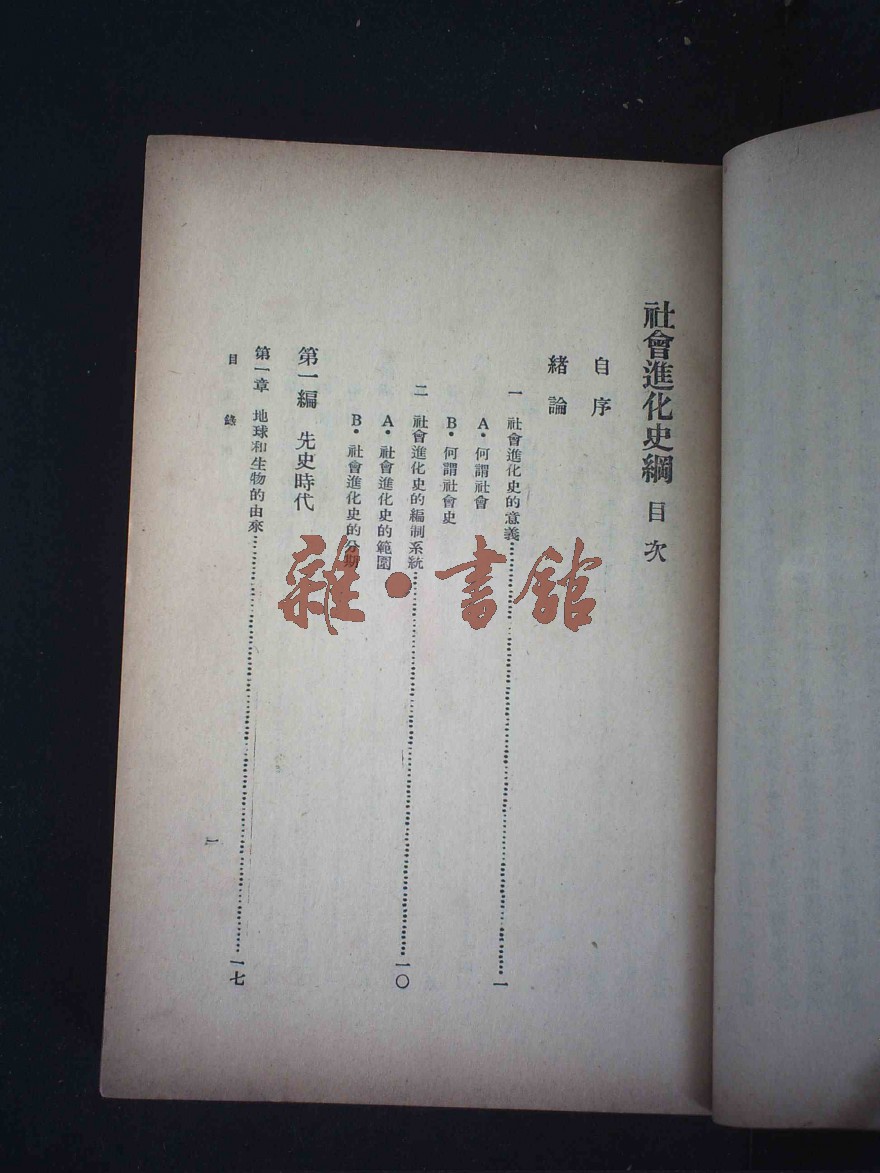 社會進化史綱 目次
自序
緒論
一 社會進化史的意義……一
A・何謂社會
B・何謂社會史
二 社會進化史的編制系統……一〇
A・社會進化史的範圍
B・社會進化史的分期
第一編 先史時代
第一章 地球和生物的由來……一七
目錄
一
雜・書館